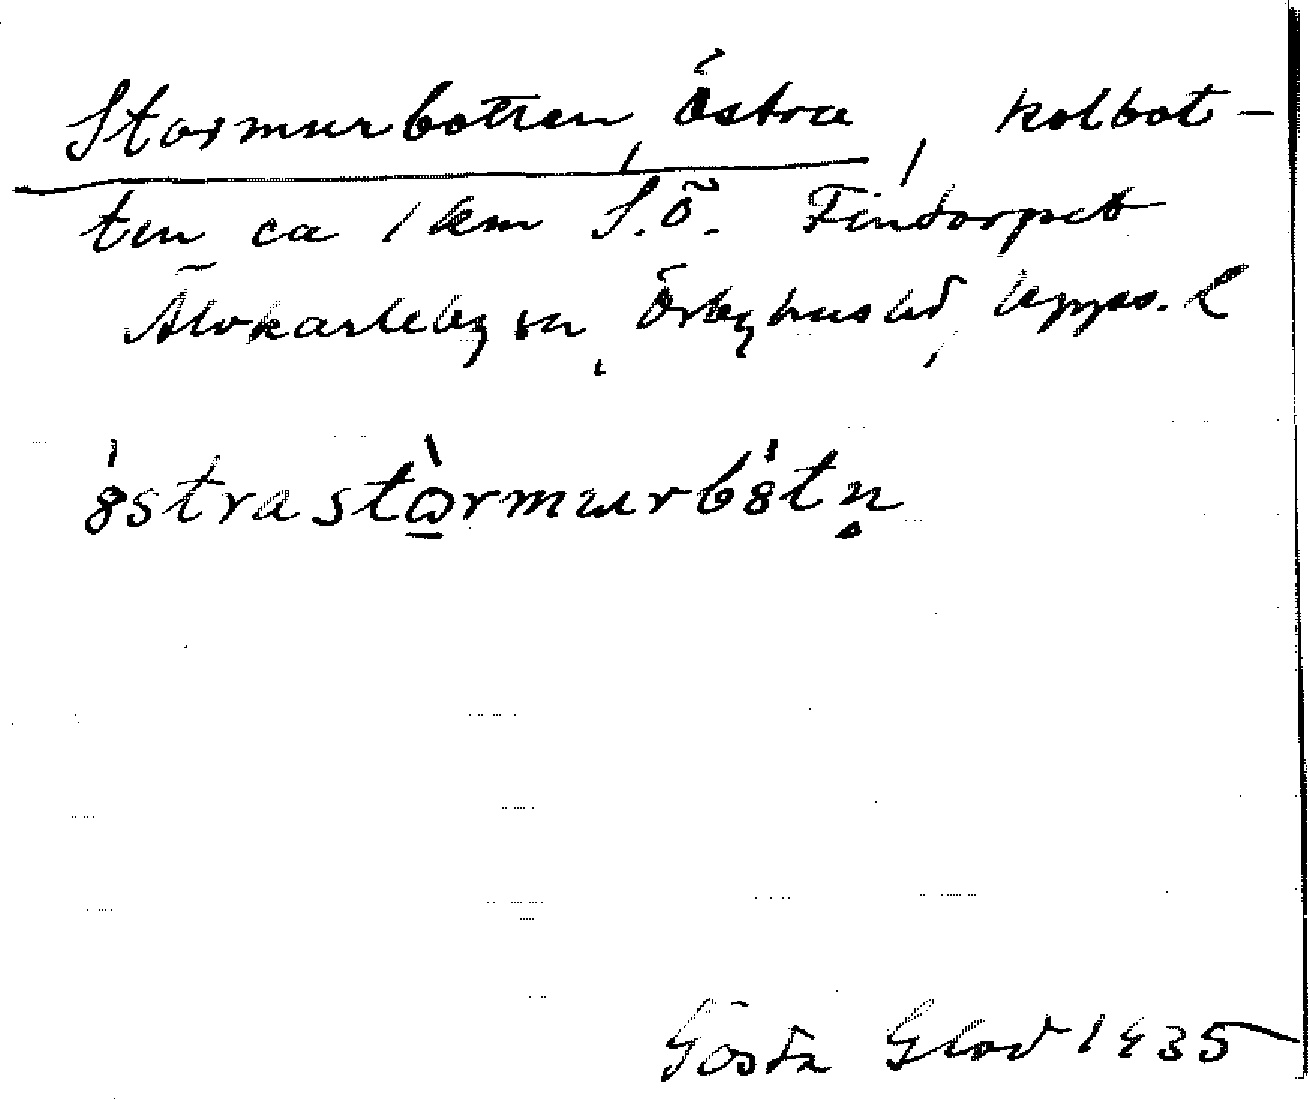 Stormurbotten, Östra, kolbot-
ten ca 1 km S.Ö. Fintorpet
Älvkarleby sn, Örbyhus hd, Upps. l
östrastòrmurbötn̥
Gösta Glad 1935